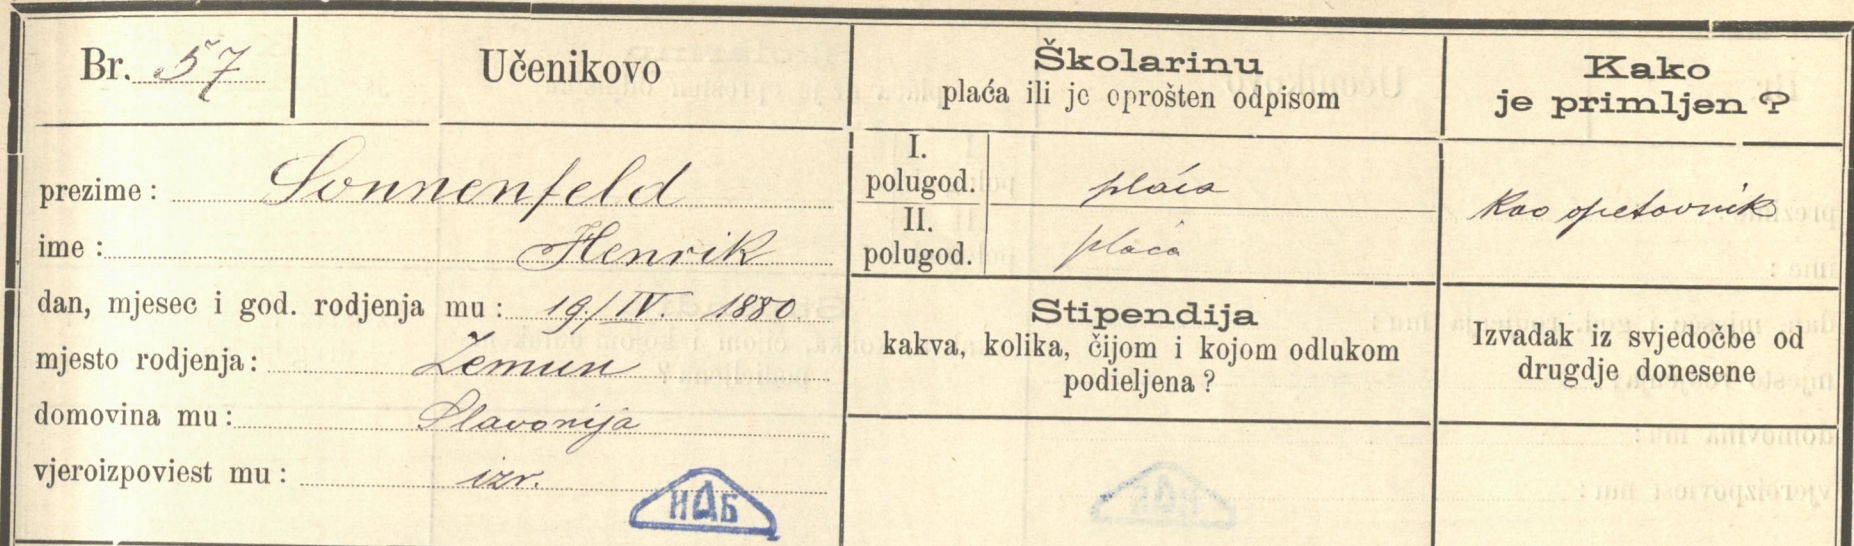 Br. 57
Učenikovo
prezime: Sonnenfeld
ime: Henrik
dan, mjesec i god. rodjenja mu: 19/IV. 1880.
mjesto rodjenja: Zemun
domovina mu: Slavonija
vjeroizpoviest mu: izr.
ИАБ
Školarinu
plaća ili je oprošten odpisom
I.
polugod. plaća
II.
polugod. plaća
Stipendija
kakva, kolika, čijom i kojom odlukom
podieljena?
Kako
je primljen?
Kao opetovnik
Izvadak iz svjedočbe od
drugdje donesene